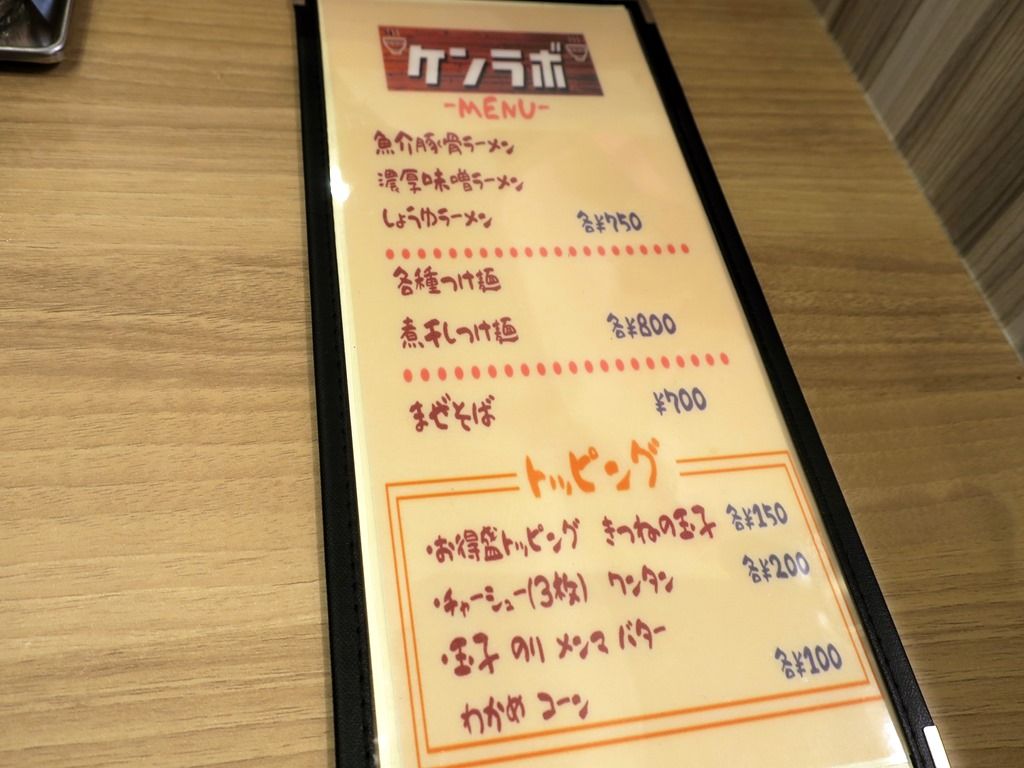 ケンラボ
-MENU-
魚介豚骨ラーメン
濃厚味噌ラーメン
しょうゆラーメン 各¥750
各種つけ麺
煮干しつけ麺 各¥800
まぜそば ¥700
トッピング
・お得盛トッピング きつねの玉子 各¥150
・チャーシュー(3枚) ワンタン 各¥200
・玉子 のり メンマ バター
わかめ コーン 各¥100